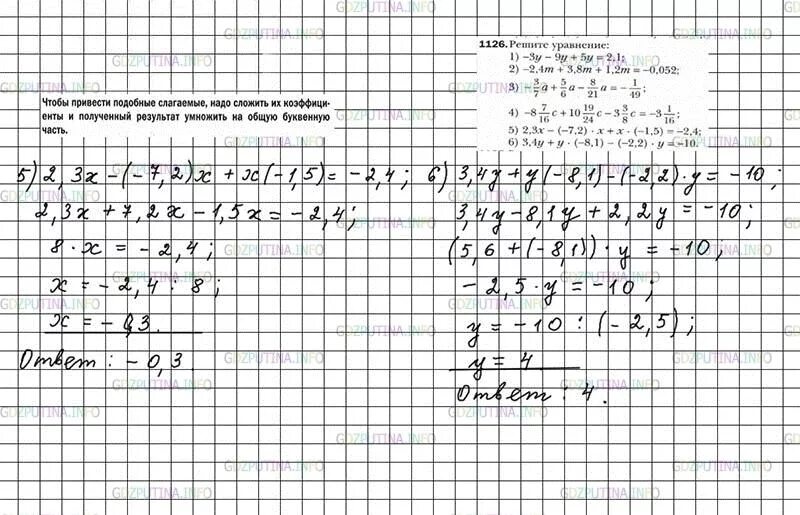 1126. Решите уравнение:
1) −3y − 9y + 5y = 2,1;
2) −2,4m + 3,8m + 1,2m = −0,052;
3) −3/7 a + 5/6 a − 8/21 a = −1/49;
4) −8 7/16 c + 10 19/24 c − 3 3/8 c = −3 1/16;
5) 2,3x − (−7,2) · x + x · (−1,5) = −2,4;
6) 3,4y + y · (−8,1) − (−2,2) · y = −10.
Чтобы привести подобные слагаемые, надо сложить их коэффици-
енты и полученный результат умножить на общую буквенную
часть.
5) 2,3x − (−7,2)x + x(−1,5) = −2,4;
2,3x + 7,2x − 1,5x = −2,4;
8 · x = −2,4;
x = −2,4 : 8;
x = −0,3.
Ответ: −0,3.
6) 3,4y + y(−8,1) − (−2,2) · y = −10;
3,4y − 8,1y + 2,2y = −10;
(5,6 + (−8,1)) · y = −10;
−2,5 · y = −10;
y = −10 : (−2,5);
y = 4.
Ответ: 4.
GDZPUTINA.INFO